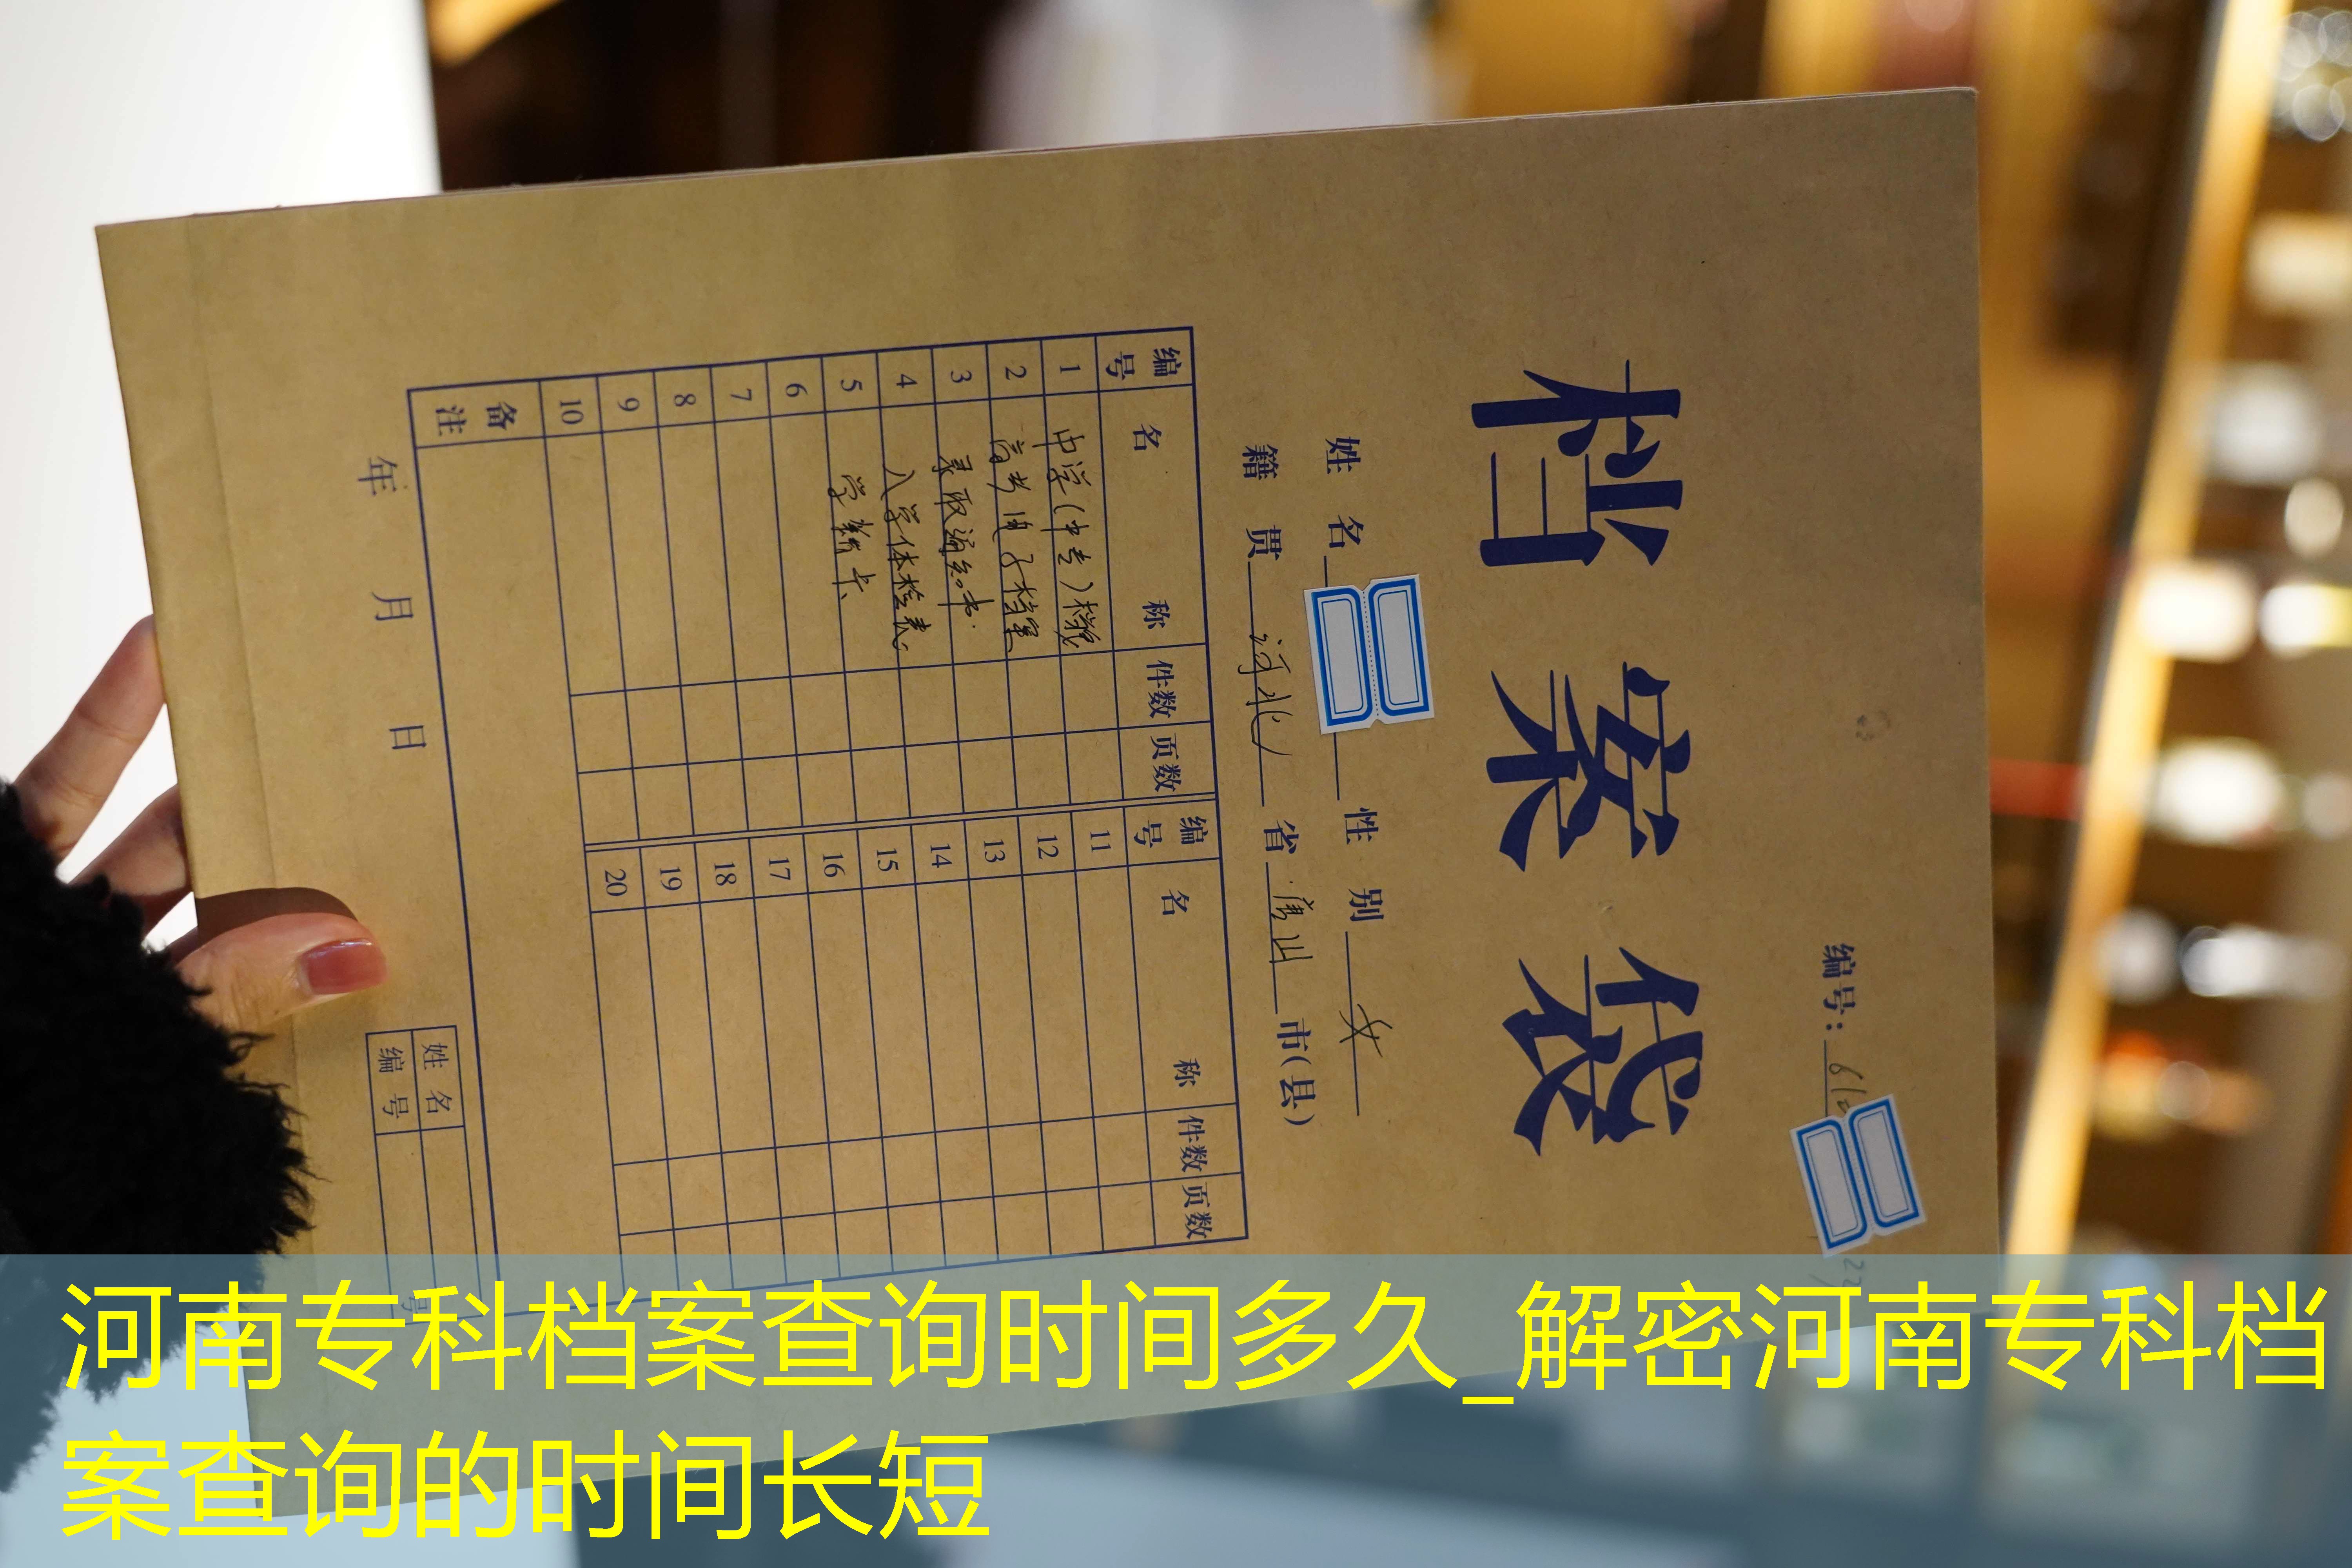 编号：61
档案袋
姓名 性别 女
籍贯 河北 省 唐山 市(县)
编号 名称 件数 页数 编号 名称 件数 页数
1 中学(中专)档案 11
2 高考电子档案 12
3 录取通知书. 13
4 入学体检表 14
5 学籍卡 15
6 16
7 17
8 18
9 19
10 20
备注
年 月 日
姓名
编号
号
河南专科档案查询时间多久_解密河南专科档
案查询的时间长短